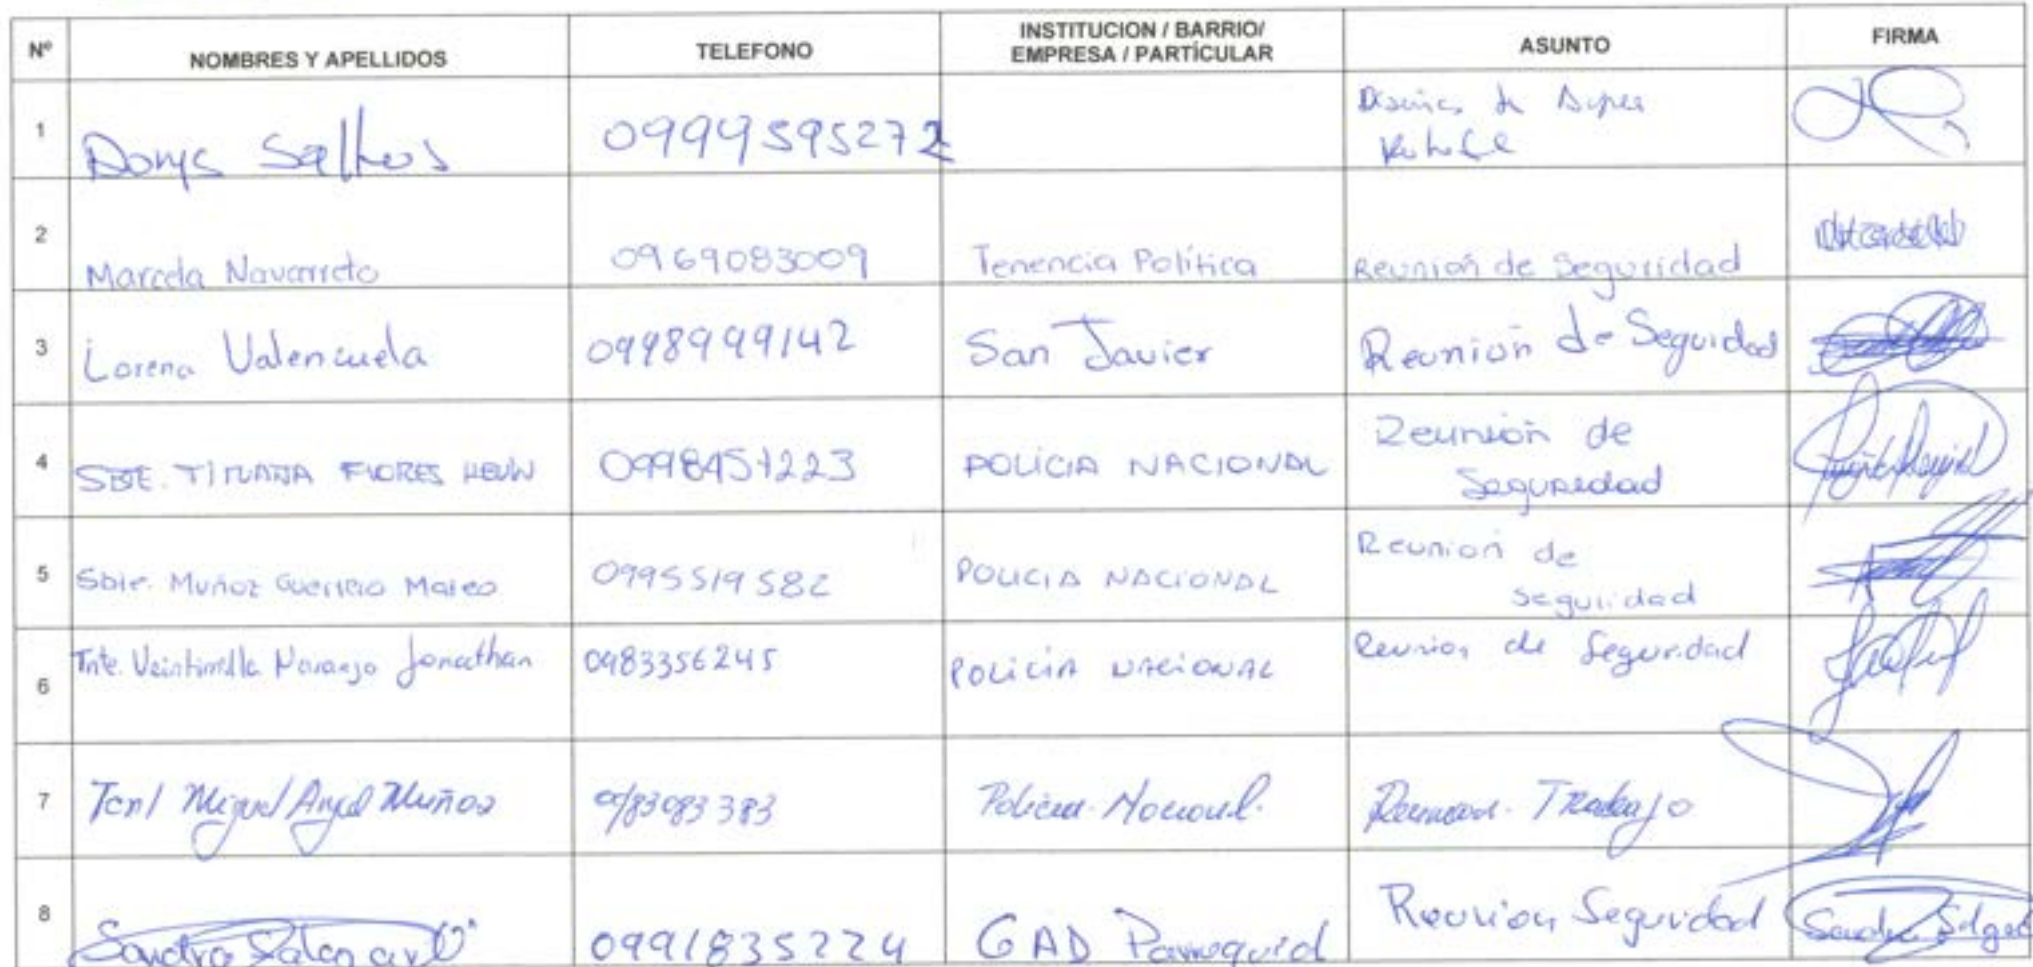 Nº NOMBRES Y APELLIDOS TELEFONO INSTITUCION / BARRIO/ EMPRESA / PARTÍCULAR ASUNTO FIRMA
1 Dorys Saltos 0999595272
2 Marcela Navarrete 0969083009 Tenencia Política Reunión de Seguridad
3 Lorena Valenzuela 0998999142 San Javier Reunión de Seguridad
4 FLORES 0998457223 POLICIA NACIONAL Reunión de
Seguridad
5 Sbte. Muñoz Guerrero Mateo 0995519582 POLICIA NACIONAL Reunion de
seguridad
6 Tnte. Veintimilla Naranjo Jonathan 0983356245 POLICÍA NACIONAL Reunion de Seguridad
7 Tcnl Miguel Angel Muñoz Policia Nacional. Trabajo
8 Sandra Salazar 0991835224 GAD Parroquial Reunion Seguridad